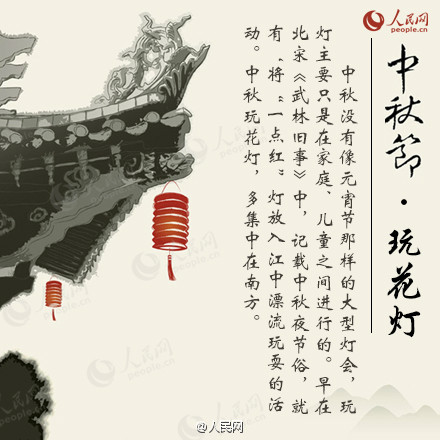 人民网
people.cn
中秋節·玩花灯
中秋没有像元宵节那样的大型灯会，玩
灯主要只是在家庭、儿童之间进行的。早在
北宋《武林旧事》中，记载中秋夜节俗，就
有‘将“一点红”灯放入江中漂流玩耍的活
动。中秋玩花灯，多集中在南方。
人民网
人民网
人民网
人民网
@人民网